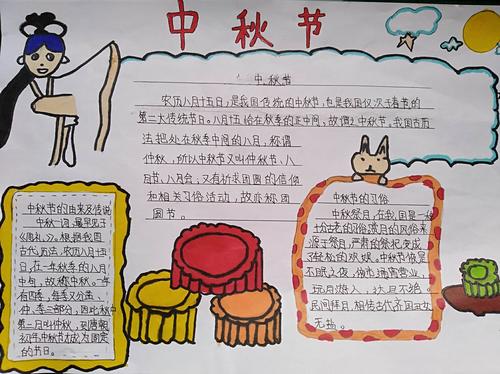 中秋节
中秋节
农历八月十五日,是我国传统的中秋节,也是我国仅次于春节的
第二大传统节日。八月十五恰在秋季的正中间,故谓之中秋节,我国古历
法把处在秋季中间的八月,称谓
仲秋,所以中秋节又叫仲秋节、八
月节、八月会;又有祈求团圆的信仰
和相关习俗活动,故亦称团
圆节。
中秋节的由来及传说
中秋一词,最早见于
《周礼》。根据我国
古代历法,农历八月十五
日,在一年秋季的八月
中旬,故称中秋。一年
有四季,每季又分孟、
仲、季三部分,因此秋中
第二月叫仲秋,到唐朝
初年中秋节才成为固定
的节日。
中秋节的习俗
中秋祭月,在我国是一种
十分古老的习俗赏月的风俗来
源于祭月,严肃的祭祀变成
了轻松的欢娱。中秋节夜是
不眠之夜,夜市通宵营业,
玩月游人,达旦不绝。
民间拜月,相传古代齐国丑女
无盐。